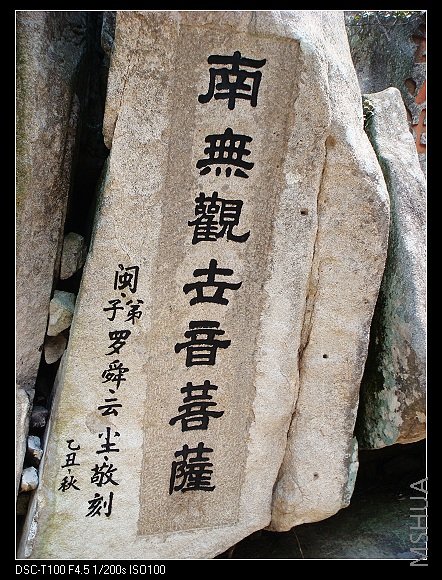 南無觀世音菩薩
闽弟子罗舜云尘敬刻
乙丑秋
MSHUA
DSC-T100 F4.5 1/200s ISO100